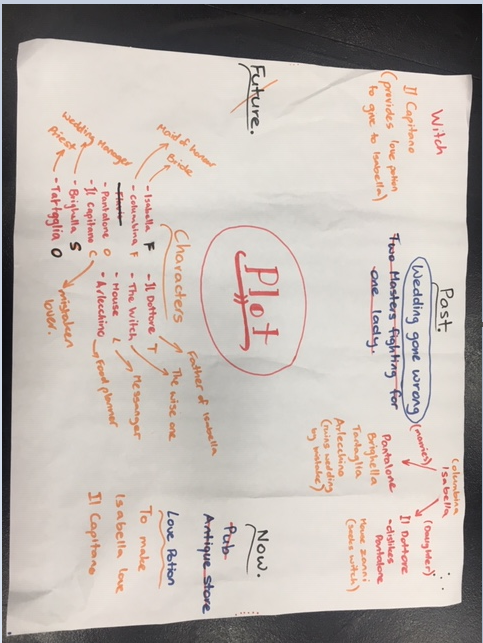 Witch
Il Capitano
(provides love potion
to give to Isabella)
Past.
Wedding gone wrong
Two Masters fighting for
one lady.
Columbina
Isabella
(marries)
(Daughter)
Pantalone
Brighella
Tartaglia
Arlecchino
(ruins wedding
by mistake)
Il Dottore
- dislikes
Pantalone
Mouse zanni
(seeks witch)
Future.
Plot
Characters
Maid of honour
Bride
Wedding Manager
Priest
- Isabella F
- Columbina F
- Pantalone O
- Il Capitano C
- Brighella S
- Tartaglia O
- Il Dottore T
- The Witch
- Mouse L
- Arlecchino
Father of Isabella
The wise one
Messanger
Food planner
mistaken
lover.
Now.
Pub
Antique store
Love Potion
To make
Isabella love
Il Capitano